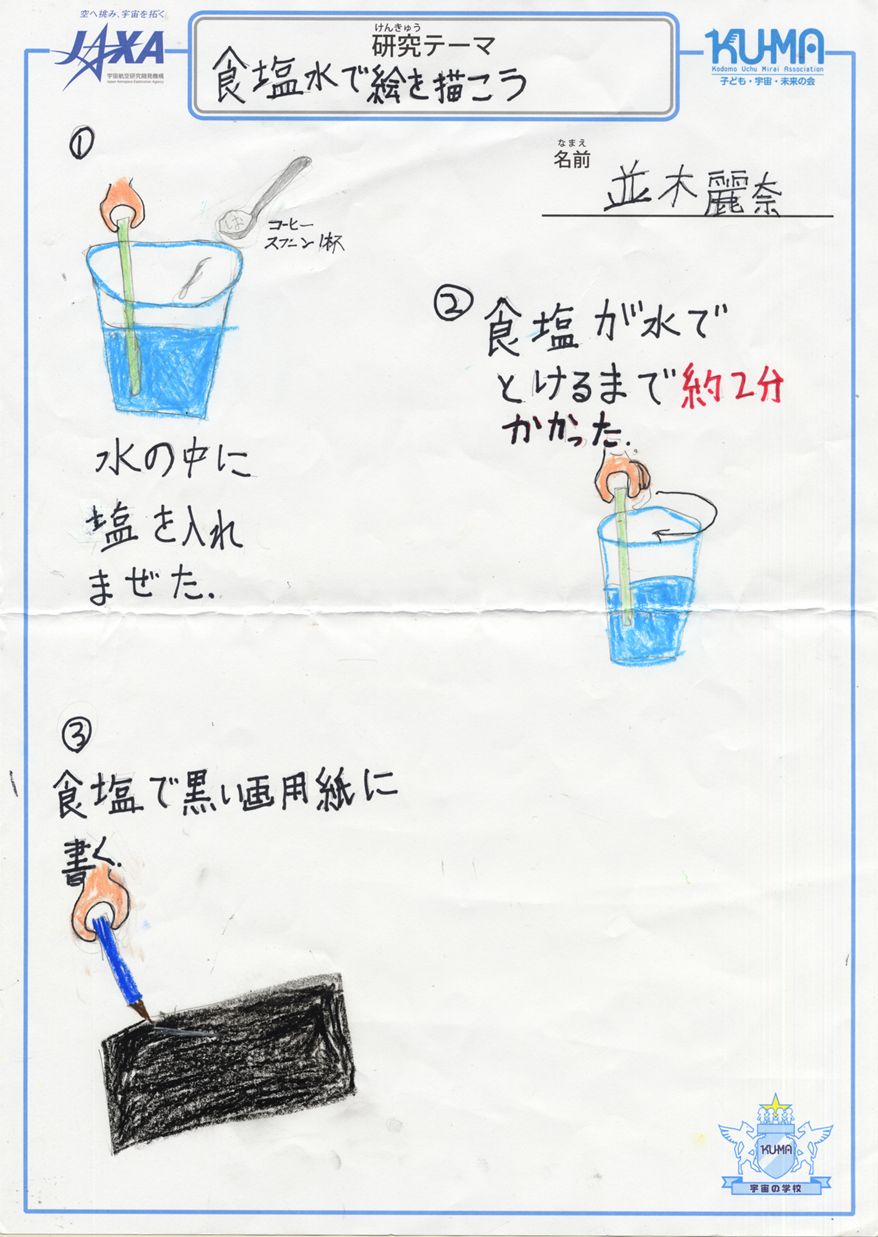 空へ挑み、宇宙を拓く
JAXA
宇宙航空研究開発機構
Japan Aerospace Exploration Agency
けんきゅう
研究テーマ
食塩水で絵を描こう
KU-MA
Kodomo Uchu Mirai Association
子ども・宇宙・未来の会
なまえ
名前
並木麗奈
①
お
コーヒー
スプーン1杯
水の中に
塩を入れ
まぜた.
②
食塩が水で
とけるまで約2分
かかった.
③
食塩で黒い画用紙に
書く.
KU-MA
宇宙の学校